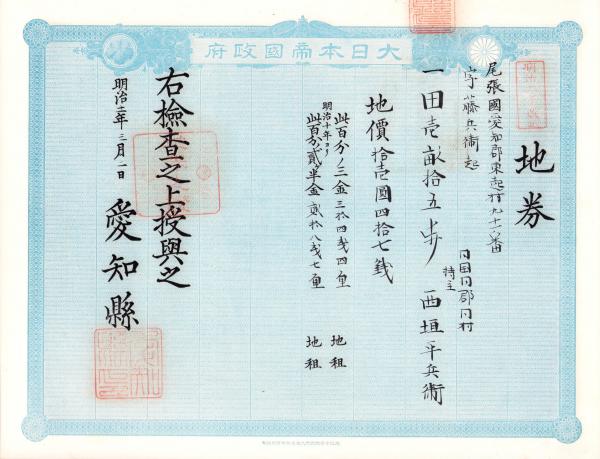 大日本帝國政府
地券
尾張國愛知郡東起村九十六番
字藤兵衛起
同国同郡同村
持主
一田壱畝拾五歩 西垣平兵衛
地價拾壱圓四拾七銭
此百分ノ三金三拾四銭四厘 地租
明治十年ヨリ
此百分ノ貳半金貳拾八銭七厘 地租
右檢查之上授與之
明治十二年三月一日
愛知縣